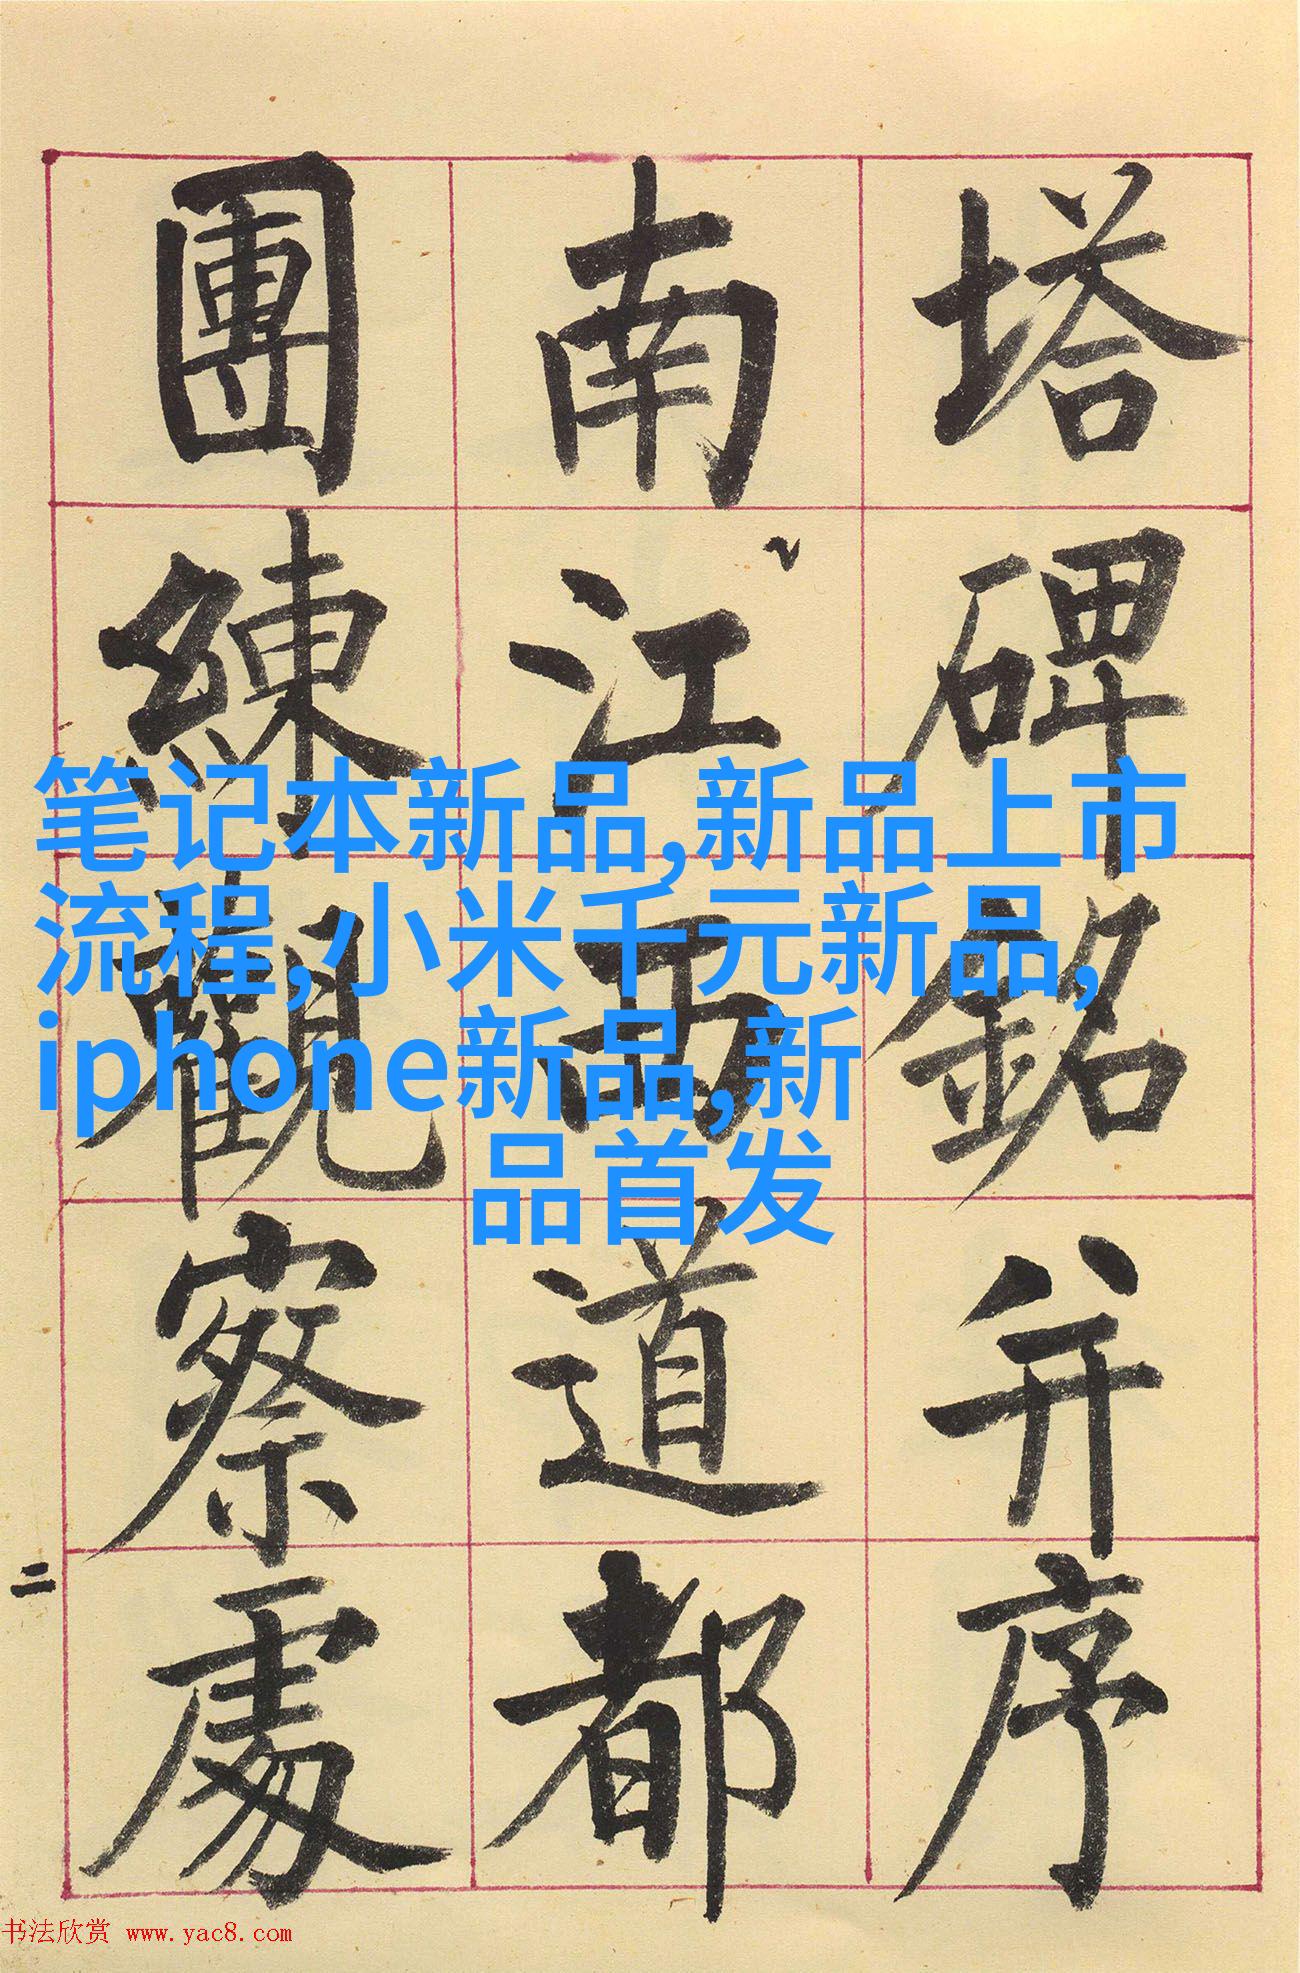 塔碑銘并序
南江西道都
團練觀察處
二
笔记本新品,新品上市
流程,小米千元新品,
iphone新品,新
品首发
书法欣赏 www.yac8.com